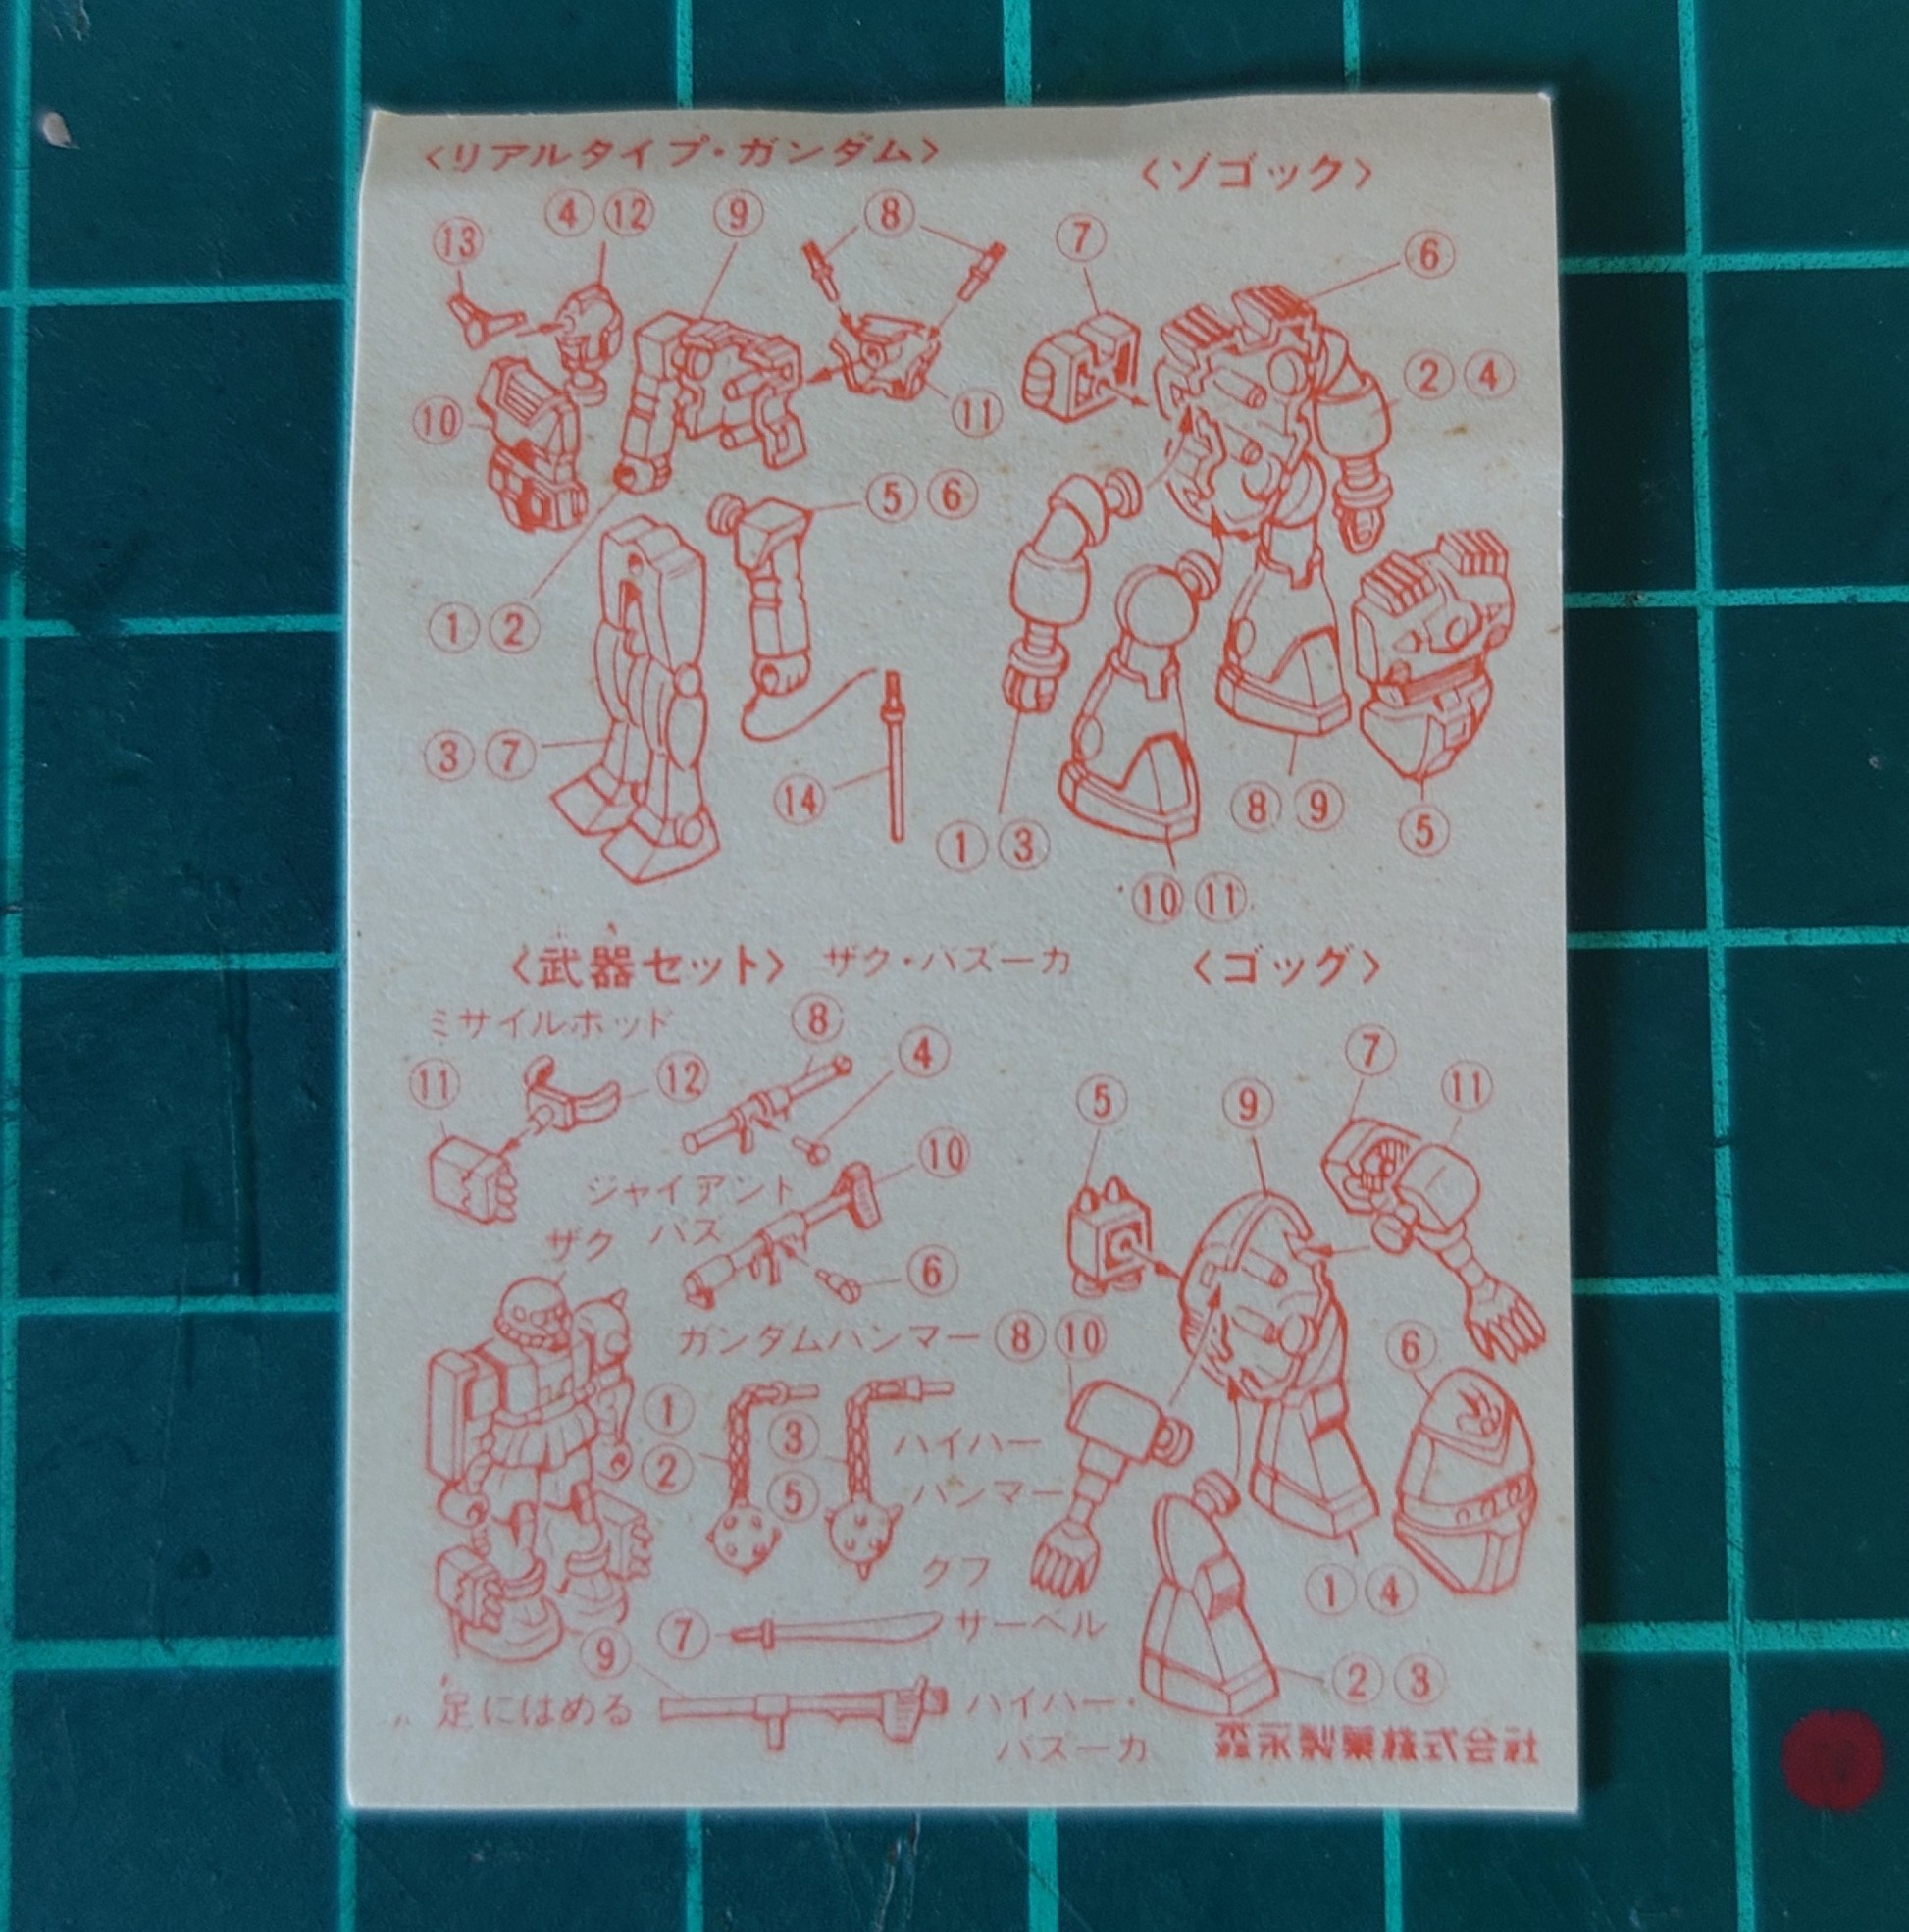 〈リアルタイプ・ガンダム〉
④ ⑫ ⑨ ⑧
⑬
⑩
⑪
⑤ ⑥
① ②
③ ⑦
⑭
〈ゾゴック〉
⑦ ⑥
② ④
① ③
⑧ ⑨
⑤
⑩ ⑪
〈武器セット〉 ザク・バズーカ
ミサイルポッド
⑧
④
⑪ ⑫
ジャイアント
バズ
⑩
ザク
⑥
ガンダムハンマー
①
②
③
⑤
ハイパー
ハンマー
グフ
⑦ サーベル
⑨
足にはめる
ハイパー・
バズーカ
〈ゴッグ〉
⑦
⑪
⑤ ⑨
⑧ ⑩
⑥
① ④
② ③
森永製菓株式会社